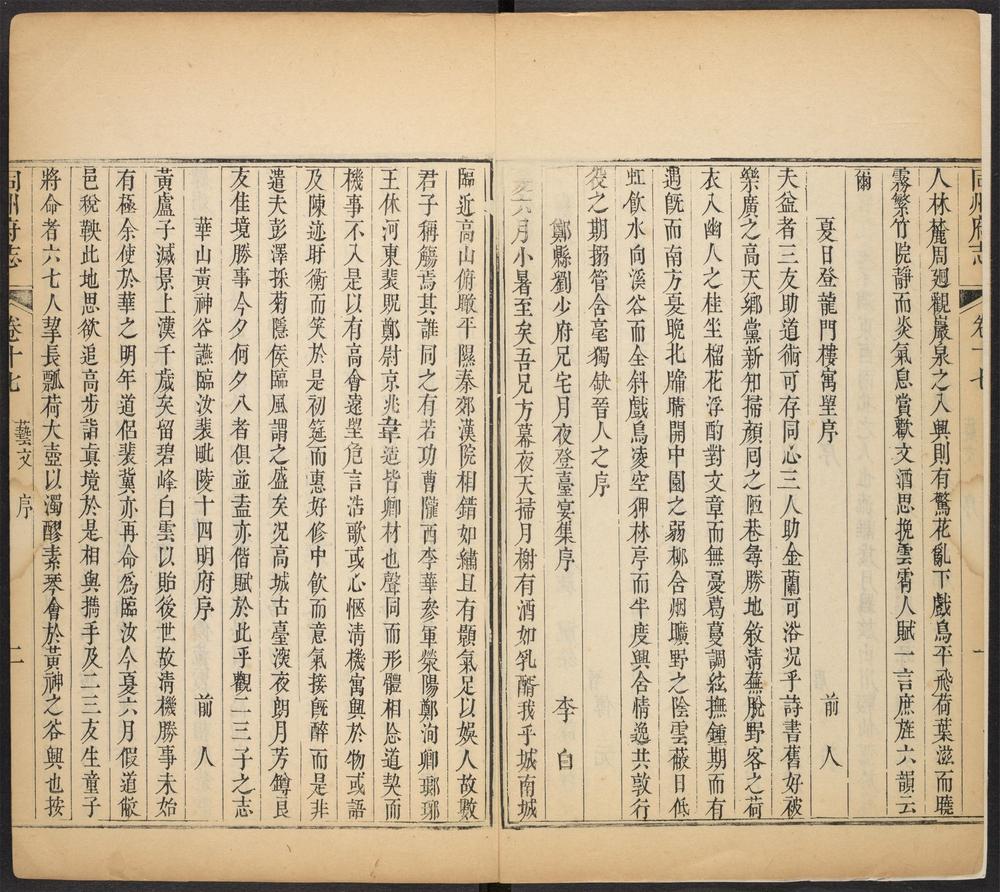 同州府志 卷十七 一
人林麓周廻觀巖泉之入興則有驚花亂下戲鳥平飛荷葉滋而曉
霧繁竹院靜而炎氣息賞歡文酒思挽雲霄人賦一言庶旌六韻云
爾
夏日登龍門樓寓望序 前人
夫益者三友助道術可存同心三人助金蘭可浴况乎詩書舊好被
樂廣之高天鄉黨新知掃顏囘之陋巷尋勝地敘清蕪脫野客之荷
衣入幽人之桂坐榴花浮酌對文章而無憂葛蔓調絃撫鍾期而有
遇旣而南方夏晚北牖晴開中園之弱柳含烟曠野之陰雲蔽日低
虹飲水向溪谷而全斜戲鳥凌空狎林亭而半度興含情逸共敦行
役之期搦管含毫獨缺晉人之序
鄭縣劉少府兄宅月夜登臺宴集序 李白
夏六月小暑至矣吾兄方幕夜天掃月榭有酒如乳醑我乎城南城
臨近高山俯瞰平隰秦郊漢院相錯如繡且有顥氣足以娛人故數
君子稱觴焉其誰同之有若功曹隴西李華參軍滎陽鄭洵卿瑯琊
王休河東裴貺鄭尉京兆韋造皆卿材也聲同而形體相忘道契而
機事不入是以有高會遠望危言浩歌或心愜清機寓興於物或語
及陳迹盱衡而笑於是初筵而惠好修中飲而意氣接旣醉而是非
遣夫彭澤採菊隱侯臨風謂之盛矣况高城古臺深夜朗月芳罇良
友佳境勝事今夕何夕八者俱並盍亦偕賦於此乎觀二三子之志
華山黃神谷讌臨汝裴毗陵十四明府序 前人
黃盧子滅景上漢千歲矣留碧峰白雲以貽後世故清機勝事未始
有極余使於華之明年道侶裴冀亦再命爲臨汝今夏六月假道敝
邑稅鞅此地思欲追高步詣眞境於是相與攜手及二三友生童子
將命者六七人挈長瓢荷大壺以濁醪素琴會於黃神之谷興也按
同州府志 卷十七 藝文 序 二